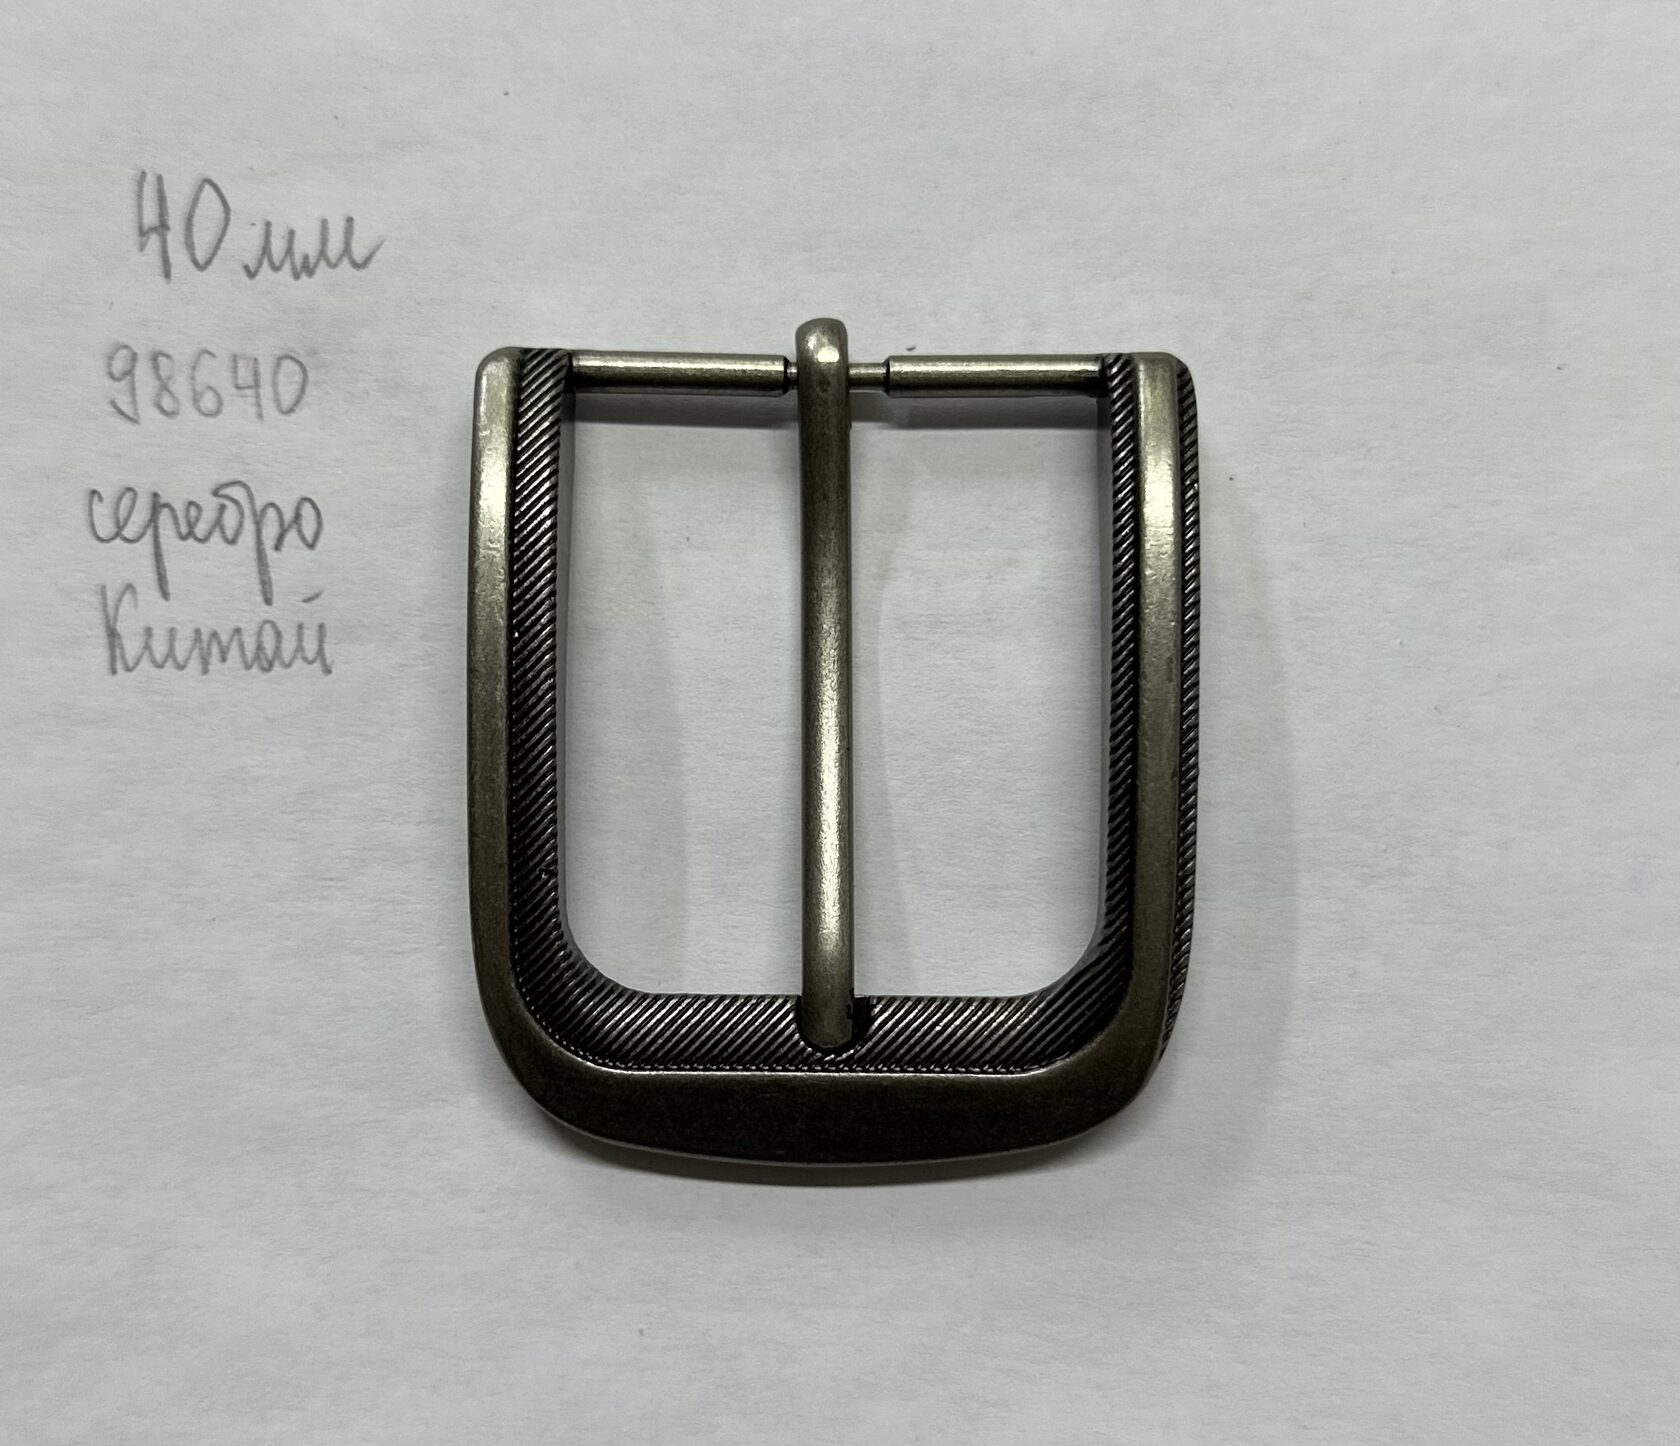 40 мм
98640
серебро
Китай